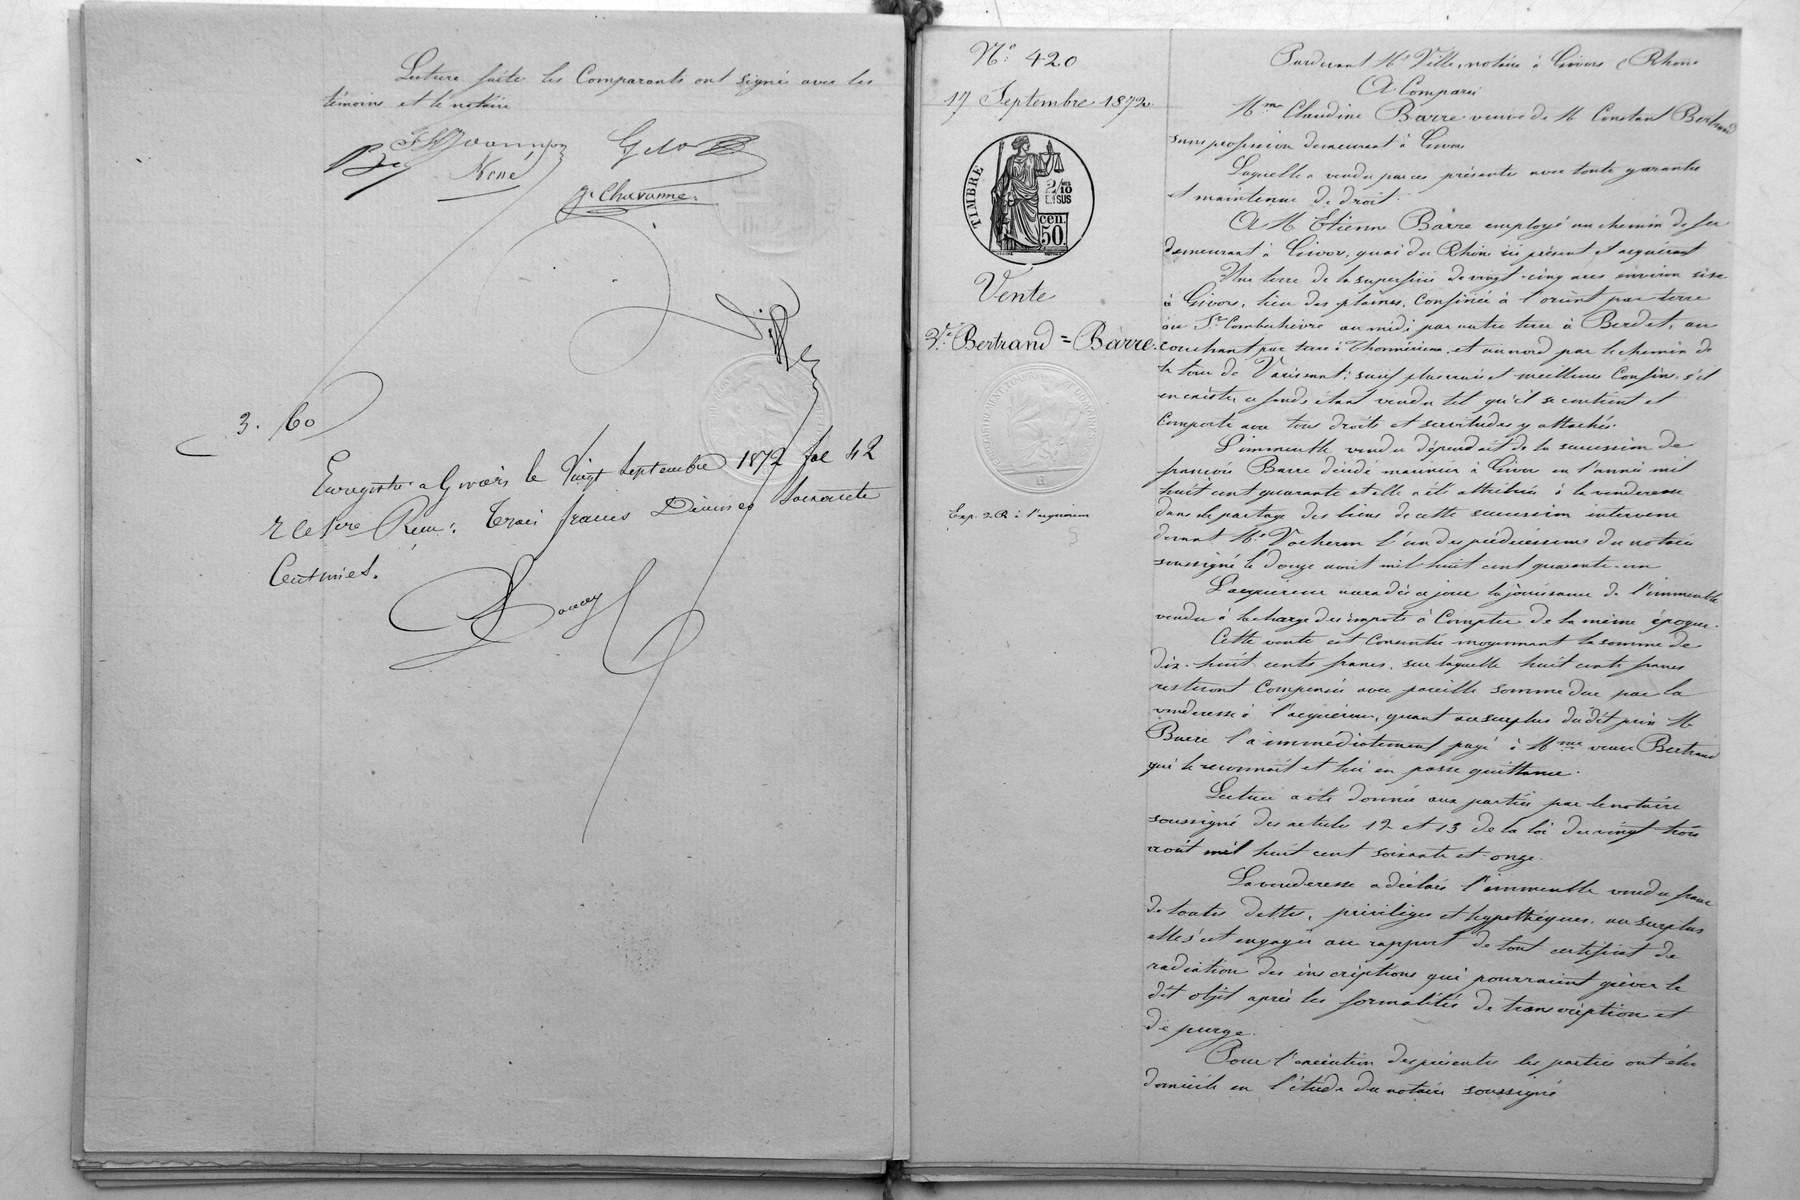 Lecture faite les Comparants ont signé avec les
témoins et le notaire
René
G. Chavanne
3. 60
Enregistré a Givors le Vingt Septembre 1872 fol 42
Reçu: Trois francs Décimes Soixante
Centimes.
N° 420
17 Septembre 1872
TIMBRE
2/10
EN SUS
50 cen
Vente
Ve Bertrand = Barre
Exp. à l'acquéreur
Pardevant Me Ville, notaire à Givors (Rhône
A Comparu
Mme Claudine Barre veuve de M Constant Bertrand
sans profession demeurant à Givors
Laquelle a vendu par ces présentes avec toute garantie
et maintenue de droit
A M Etienne Barre employé au chemin de fer
demeurant à Givors, quai du Rhône ici présent et acquérant
Une terre de la superficie de vingt-cinq ares environ sise
à Givors, lieu des plaines, Confinée à l'orient par terre
au Sr Combechèvre au midi par autre terre à Berdet, au
couchant par terre à et au nord par le chemin de
la tour de Varissant; sauf plus vrais et meilleurs Confins s'il
en existe, ce fonds étant vendu tel qu'il se contient et
Comporte avec tous droits et servitudes y attachés.
L'immeuble vendu dépendait de la succession de
françois Barre décédé marinier à Givors en l'année mil
huit cent quarante et elle a été attribué à la venderesse
dans le partage des biens de cette succession intervenu
devant Me Vacheron l'un des prédécesseurs du notaire
soussigné le douze avril mil huit cent quarante-un
L'acquéreur aura dès ce jour la jouissance de l'immeuble
vendu à la charge des impots à Compter de la même époque.
Cette vente est Consentie moyennant la somme de
dix-huit cents francs, sur laquelle huit cents francs
resteront Compensés avec pareille somme due par la
venderesse à l'acquéreur, quant au surplus du dit prix M
Barre l'a immédiatement payé à Mme veuve Bertrand
qui le reconnaît et lui en passe quittance.
Lecture a été donnée aux parties par le notaire
soussigné des articles 12 et 13 de la loi du vingt trois
août mil huit cent soixante et onze.
La venderesse a déclaré l'immeuble vendu franc
de toutes dettes, privilèges et hypothèques, au surplus
elle s'est engagée au rapport de tout certificat de
radiation des inscriptions qui pourraient grever le
dit objet après les formalités de transcription et
de purge.
Pour l'exécution des présentes les parties ont élu
domicile en l'étude du notaire soussigné